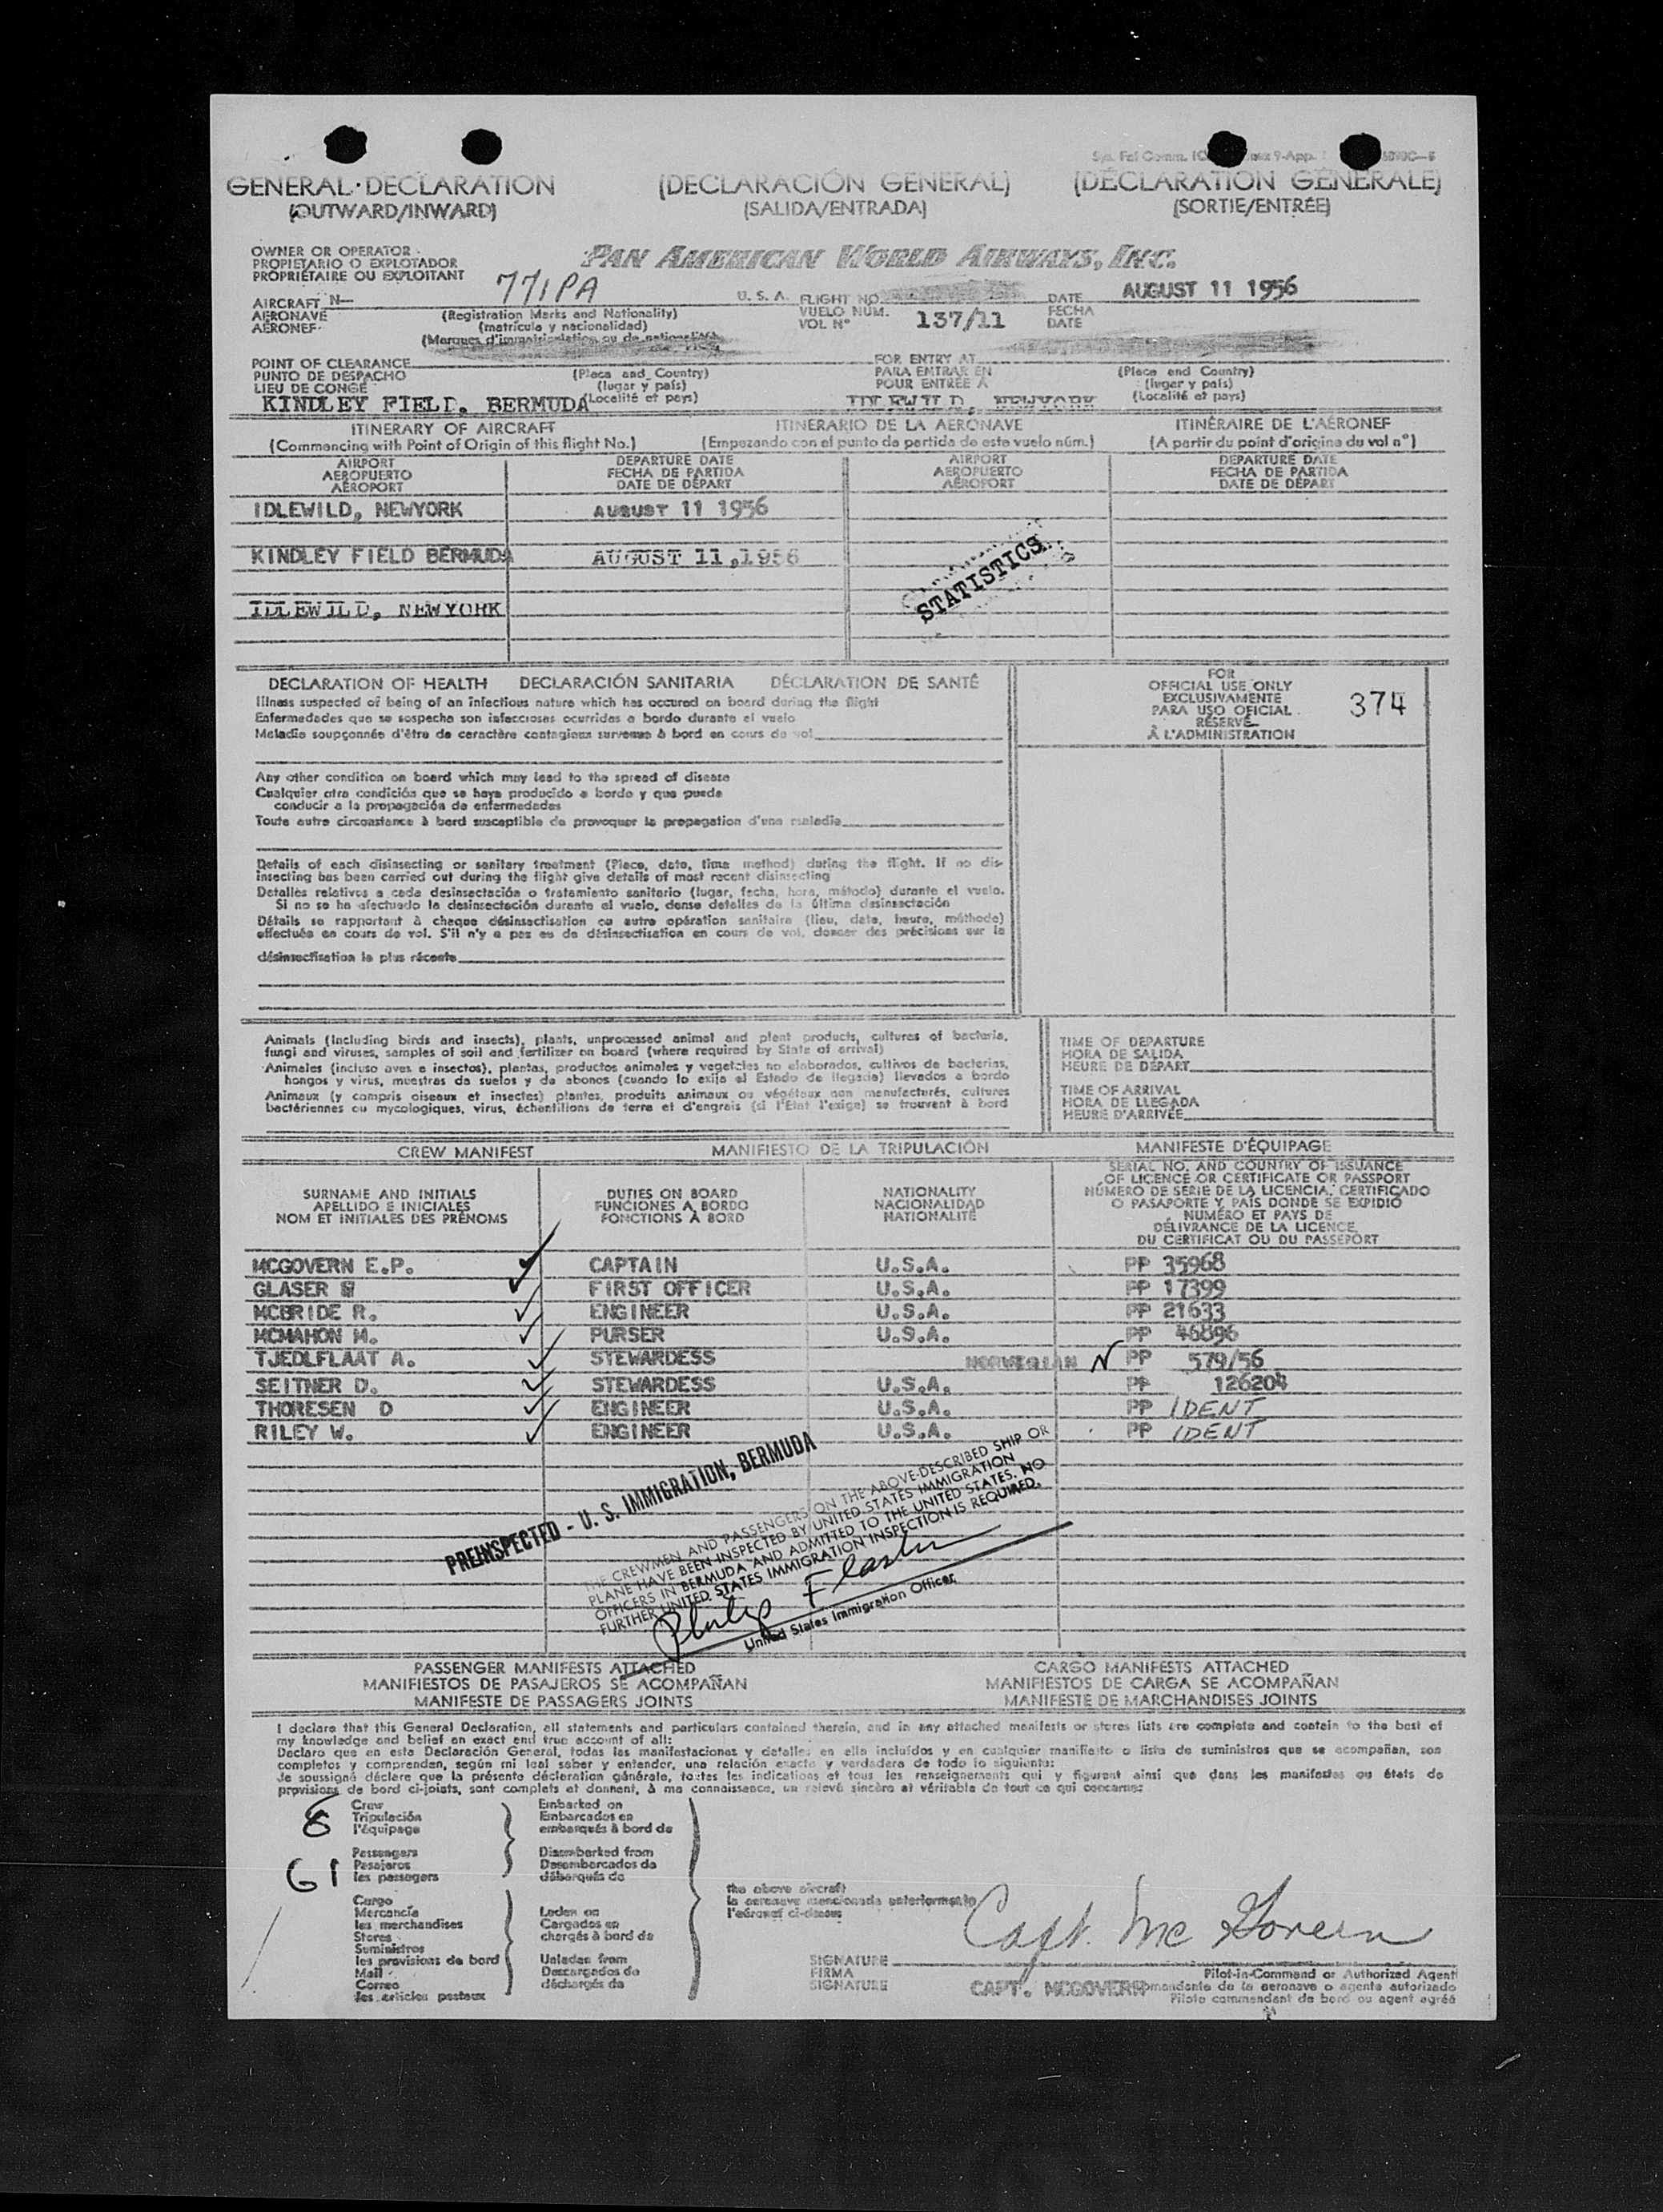 GENERAL DECLARATION (DECLARACIÓN GENERAL) (DÉCLARATION GENERALE)
(OUTWARD/INWARD) (SALIDA/ENTRADA) (SORTIE/ENTRÉE)
OWNER OR OPERATOR
PROPIETARIO O EXPLOTADOR
PROPRIÉTAIRE OU EXPLOITANT
PAN AMERICAN WORLD AIRWAYS, INC.
AIRCRAFT N— 771PA U. S. A. FLIGHT NO. DATE AUGUST 11 1956
AERONAVE (Registration Marks and Nationality) VUELO NÚM. 137/11 FECHA
AÉRONEF (matrícula y nacionalidad) VOL N° DATE
(Marques d'immatriculation ou de nationalité)
POINT OF CLEARANCE (Place and Country) FOR ENTRY AT (Place and Country)
PUNTO DE DESPACHO (lugar y país) PARA ENTRAR EN (lugar y país)
LIEU DE CONGÉ (Localité et pays) POUR ENTRÉE À (Localité et pays)
KINDLEY FIELD, BERMUDA IDLEWILD, NEWYORK
ITINERARY OF AIRCRAFT ITINERARIO DE LA AERONAVE ITINÉRAIRE DE L'AÉRONEF
(Commencing with Point of Origin of this flight No.) (Empezando con el punto de partida de este vuelo núm.) (A partir du point d'origine du vol n°)
AIRPORT DEPARTURE DATE AIRPORT DEPARTURE DATE
AEROPUERTO FECHA DE PARTIDA AEROPUERTO FECHA DE PARTIDA
AÉROPORT DATE DE DÉPART AÉROPORT DATE DE DÉPART
IDLEWILD, NEWYORK AUGUST 11 1956
KINDLEY FIELD BERMUDA AUGUST 11,1956
STATISTICS
IDLEWILD, NEWYORK
DECLARATION OF HEALTH DECLARACIÓN SANITARIA DÉCLARATION DE SANTÉ
Illness suspected of being of an infectious nature which has occured on board during the flight
Enfermedades que se sospecha son infecciosas ocurridas a bordo durante el vuelo
Maladie soupçonnée d'être de caractère contagieux survenue à bord en cours de vol
FOR
OFFICIAL USE ONLY
EXCLUSIVAMENTE
PARA USO OFICIAL
RÉSERVÉ
À L'ADMINISTRATION
374
Any other condition on board which may lead to the spread of disease
Cualquier otra condición que se haya producido a bordo y que puede
conducir a la propagación de enfermedades
Toute autre circonstance à bord susceptible de provoquer la propagation d'une maladie
Details of each disinsecting or sanitary treatment (Place, date, time method) during the flight. If no dis-
insecting has been carried out during the flight give details of most recent disinsecting
Detalles relativos a cada desinsectación o tratamiento sanitario (lugar, fecha, hora, método) durante el vuelo.
Si no se ha efectuado la desinsectación durante el vuelo, dense detalles de la última desinsectación
Détails se rapportant à chaque désinsectisation ou autre opération sanitaire (lieu, date, heure, méthode)
effectuée en cours de vol. S'il n'y a pas eu de désinsectisation en cours de vol, donner des précisions sur la
désinsectisation la plus récente
Animals (including birds and insects), plants, unprocessed animal and plant products, cultures of bacteria,
fungi and viruses, samples of soil and fertilizer on board (where required by State of arrival)
Animales (incluso aves e insectos), plantas, productos animales y vegetales no elaborados, cultivos de bacterias,
hongos y virus, muestras de suelos y de abonos (cuando lo exija el Estado de llegada) llevados a bordo
Animaux (y compris oiseaux et insectes) plantes, produits animaux ou végétaux non manufacturés, cultures
bactériennes ou mycologiques, virus, échantillons de terre et d'engrais (si l'État l'exige) se trouvant à bord
TIME OF DEPARTURE
HORA DE SALIDA
HEURE DE DÉPART
TIME OF ARRIVAL
HORA DE LLEGADA
HEURE D'ARRIVÉE
CREW MANIFEST MANIFIESTO DE LA TRIPULACIÓN MANIFESTE D'ÉQUIPAGE
SURNAME AND INITIALS
APELLIDO E INICIALES
NOM ET INITIALES DES PRÉNOMS
DUTIES ON BOARD
FUNCIONES A BORDO
FONCTIONS À BORD
NATIONALITY
NACIONALIDAD
NATIONALITÉ
SERIAL NO. AND COUNTRY OF ISSUANCE
OF LICENCE OR CERTIFICATE OR PASSPORT
NÚMERO DE SERIE DE LA LICENCIA, CERTIFICADO
O PASAPORTE Y PAÍS DONDE SE EXPIDIÓ
NUMÉRO ET PAYS DE
DÉLIVRANCE DE LA LICENCE
DU CERTIFICAT OU DU PASSEPORT
MCGOVERN E.P. CAPTAIN U.S.A. PP 35968
GLASER FIRST OFFICER U.S.A. PP 17399
MCBRIDE R. ENGINEER U.S.A. PP 21633
MCMAHON M. PURSER U.S.A. PP 46896
TJEDLFLAAT A. STEWARDESS NORWEGIAN N PP 579/56
SEITNER D. STEWARDESS U.S.A. PP 126204
THORESEN D ENGINEER U.S.A. PP IDENT
RILEY W. ENGINEER U.S.A. PP IDENT
PREINSPECTED - U. S. IMMIGRATION, BERMUDA
THE CREWMEN AND PASSENGERS ON THE ABOVE-DESCRIBED SHIP OR
PLANE HAVE BEEN INSPECTED BY UNITED STATES IMMIGRATION
OFFICERS IN BERMUDA AND ADMITTED TO THE UNITED STATES. NO
FURTHER UNITED STATES IMMIGRATION INSPECTION IS REQUIRED.
Philip
United States Immigration Officer
PASSENGER MANIFESTS ATTACHED CARGO MANIFESTS ATTACHED
MANIFIESTOS DE PASAJEROS SE ACOMPAÑAN MANIFIESTOS DE CARGA SE ACOMPAÑAN
MANIFESTE DE PASSAGERS JOINTS MANIFESTE DE MARCHANDISES JOINTS
I declare that this General Declaration, all statements and particulars contained therein, and in any attached manifests or stores lists are complete and contain to the best of
my knowledge and belief an exact and true account of all:
Declaro que en esta Declaración General, todas las manifestaciones y detalles en ella incluídos y en cualquier manifiesto o lista de suministros que se acompañan, son
completos y comprenden, según mi leal saber y entender, una relación exacta y verdadera de todo lo siguiente:
Je soussigné déclare que la présente déclaration générale, toutes les indications et tous les renseignements qui y figurent ainsi que dans les manifestes ou états de
provisions de bord ci-joints, sont complets et donnent, à ma connaissance, un relevé sincère et véritable de tout ce qui concerne:
8 Crew Embarked on
Tripulación Embarcados en
l'équipage embarqués à bord de
61 Passengers Disembarked from
Pasajeros Desembarcados de
les passagers débarqués de
Cargo
Mercancía Laden on
les merchandises Cargados en
Stores chargés à bord de
Suministros
les provisions de bord Unladen from
Mail Descargados de
Correo déchargés de
les articles postaux
the above aircraft
la aeronave mencionada anteriormente
l'aéronef ci-dessus
Capt. McGovern
SIGNATURE
FIRMA
SIGNATURE
CAPT. MCGOVERN
Pilot-in-Command or Authorized Agent
Comandante de la aeronave o agente autorizado
Pilote commandant de bord ou agent agréé